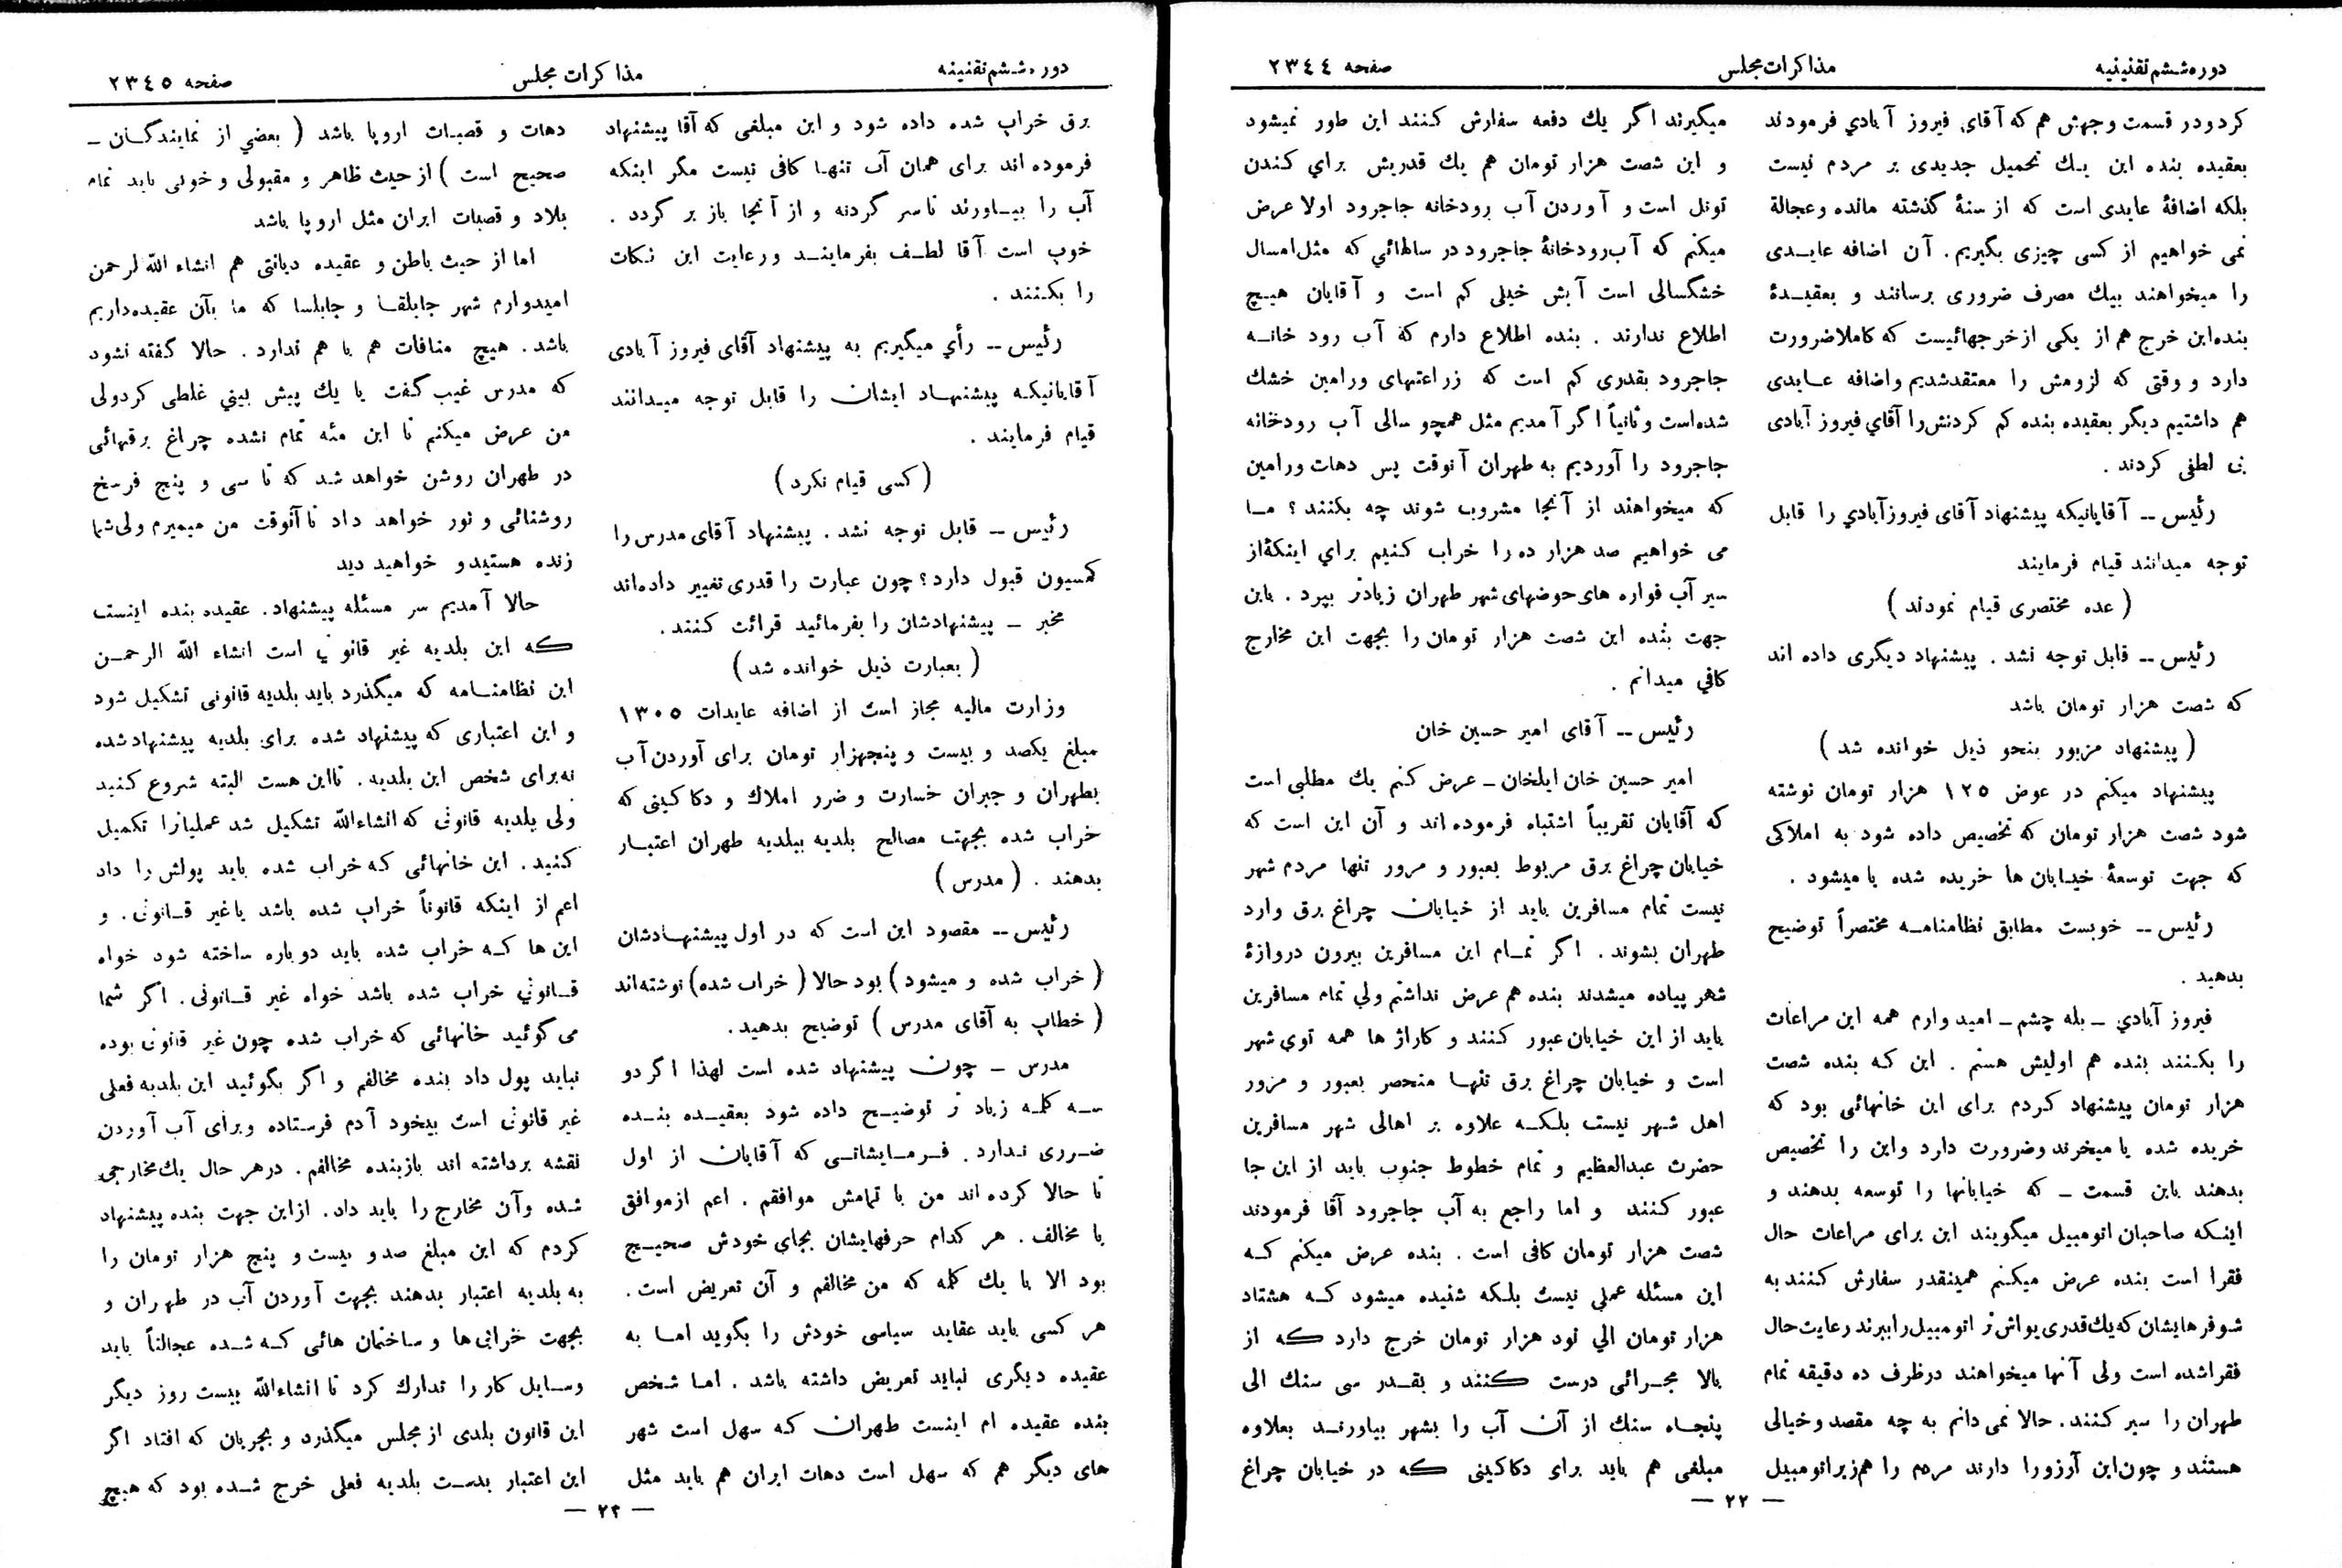 دوره ششم تقنینیه
مذاکرات مجلس
صفحه ۲۳٤٤
کرد ودر قسمت وجهش هم که آقای فیروز آبادي فرمودند
بعقیده بنده این یك تحمیل جدیدی بر مردم نیست
بلکه اضافهٔ عایدی است که از سنهٔ گذشته مانده وعجالة
نمی خواهیم از کسی چیزی بگیریم . آن اضافه عایدی
را میخواهند بیك مصرف ضروری برسانند و بعقیدهٔ
بنده این خرج هم از یکی ازخرجهائیست که کاملا ضرورت
دارد و وقتی که لزومش را معتقدشدیم واضافه عایدی
هم داشتیم دیگر بعقیده بنده کم کردنش را آقاي فیروز آبادی
بی لطفی کردند .
رئیس ــ آقایانیکه پیشنهاد آقای فیروزآبادي را قابل
توجه میدانند قیام فرمایند
( عده مختصری قیام نمودند )
رئیس ــ قابل توجه نشد . پیشنهاد دیگری داده اند
که شصت هزار تومان باشد
( پیشنهاد مزبور بنحو ذیل خوانده شد )
پیشنهاد میکنم در عوض ۱۲٥ هزار تومان نوشته
شود شصت هزار تومان که تخصیص داده شود به املاکی
که جهت توسعهٔ خیابان ها خریده شده یا میشود .
رئیس ــ خوبست مطابق نظامنامه مختصراً توضیح
بدهید .
فیروز آبادي ــ بله چشم ــ امیدوارم همه این مراعات
را بکنند بنده هم اولیش هستم . این که بنده شصت
هزار تومان پیشنهاد کردم برای این خانهائی بود که
خریده شده یا میخرند وضرورت دارد واین را تخصیص
بدهند باین قسمت ــ که خیابانها را توسعه بدهند و
اینکه صاحبان اتومبیل میگویند این برای مراعات حال
فقرا است بنده عرض میکنم همینقدر سفارش کنند به
شوفرهایشان که یك قدری یواش تر اتومبیل را ببرند رعایت حال
فقرا شده است ولی آنها میخواهند درظرف ده دقیقه تمام
طهران را سیر کنند . حالا نمی دانم به چه مقصد وخیالی
هستند و چون این آرزو را دارند مردم را هم زیر اتومبیل
میگیرند اگر یك دفعه سفارش کنند این طور نمیشود
و این شصت هزار تومان هم یك قدریش براي کندن
تونل است و آوردن آب رودخانه جاجرود اولا عرض
میکنم که آب رودخانهٔ جاجرود در سالهائي که مثل امسال
خشگسالی است آبش خیلی کم است و آقایان هیچ
اطلاع ندارند . بنده اطلاع دارم که آب رود خانه
جاجرود بقدری کم است که زراعتهای ورامین خشك
شده است وثانیاً اگر آمدیم مثل همچو سالی آب رودخانه
جاجرود را آوردیم به طهران آنوقت پس دهات ورامین
که میخواهند از آنجا مشروب شوند چه بکنند ؟ ما
می خواهیم صد هزار ده را خراب کنیم براي اینکه از
سیر آب فواره های حوضهای شهر طهران زیادتر بپرد . باین
جهت بنده این شصت هزار تومان را بجهت این مخارج
کافي میدانم .
رئیس ــ آقای امیر حسین خان
امیر حسین خان ایلخان ــ عرض کنم یك مطلبی است
که آقایان تقریباً اشتباه فرموده اند و آن این است که
خیابان چراغ برق مربوط بعبور و مرور تنها مردم شهر
نیست تمام مسافرین باید از خیابان چراغ برق وارد
طهران بشوند . اگر تمام این مسافرین بیرون دروازهٔ
شهر پیاده میشدند بنده هم عرض نداشتم ولي تمام مسافرین
باید از این خیابان عبور کنند و کاراژ ها همه توي شهر
است و خیابان چراغ برق تنها منحصر بعبور و مرور
اهل شهر نیست بلکه علاوه بر اهالی شهر مسافرین
حضرت عبدالعظیم و تمام خطوط جنوب باید از این جا
عبور کنند و اما راجع به آب جاجرود آقا فرمودند
شصت هزار تومان کافی است . بنده عرض میکنم که
این مسئله عملي نیست بلکه شنیده میشود که هشتاد
هزار تومان الي نود هزار تومان خرج دارد که از
بالا مجرائی درست کنند و بقدر سی سنك الی
پنجاه سنك از آن آب را بشهر بیاورند بعلاوه
مبلغی هم باید برای دکاکینی که در خیابان چراغ
ــ ۲۲ ــ
دوره ششم تقنینه
مذاکرات مجلس
صفحه ۲۳٤٥
برق خراب شده داده شود و این مبلغی که آقا پیشنهاد
فرموده اند برای همان آب تنها کافی نیست مگر اینکه
آب را بیاورند تا سر گردنه و از آنجا باز بر گردد .
خوب است آقا لطف بفرمایند ورعایت این نکات
را بکنند .
رئیس ــ رأي میگیریم به پیشنهاد آقای فیروز آبادی
آقایانیکه پیشنهاد ایشان را قابل توجه میدانند
قیام فرمایند .
( کسی قیام نکرد )
رئیس ــ قابل توجه نشد . پیشنهاد آقای مدرس را
کمسیون قبول دارد ؟ چون عبارت را قدری تغییر داده اند
مخبر ــ پیشنهادشان را بفرمائید قرائت کنند .
( بعبارت ذیل خوانده شد )
وزارت مالیه مجاز است از اضافه عایدات ۱۳۰٥
مبلغ یکصد و بیست و پنجهزار تومان برای آوردن آب
بطهران و جبران خسارت و ضرر املاك و دکاکینی که
خراب شده بجهت مصالح بلدیه ببلدیه طهران اعتبار
بدهند . ( مدرس )
رئیس ــ مقصود این است که در اول پیشنهادشان
( خراب شده و میشود ) بود حالا ( خراب شده ) نوشته اند
( خطاب به آقای مدرس ) توضیح بدهید .
مدرس ــ چون پیشنهاد شده است لهذا اگر دو
سه کلمه زیاد تر توضیح داده شود بعقیده بنده
ضرری ندارد . فرمایشاتی که آقایان از اول
تا حالا کرده اند من با تمامش موافقم . اعم ازموافق
یا مخالف . هر کدام حرفهایشان بجای خودش صحیح
بود الا با یك کلمه که من مخالفم و آن تعریض است .
هر کسی باید عقاید سیاسی خودش را بگوید اما به
عقیده دیگری نباید تعریض داشته باشد . اما شخص
بنده عقیده ام اینست طهران که سهل است شهر
های دیگر هم که سهل است دهات ایران هم باید مثل
دهات و قصبات اروپا باشد ( بعضي از نمایندگان ــ
صحیح است ) از حیث ظاهر و مقبولی و خوبی باید تمام
بلاد و قصبات ایران مثل اروپا باشد
اما از حیث باطن و عقیده دیانتی هم انشاء الله لرحمن
امیدوارم شهر جابلقا و جابلسا که ما بآن عقیده داریم
باشد . هیچ منافات هم با هم ندارد . حالا گفته نشود
که مدرس غیب گفت یا یك پیش بیني غلطی کرد ولی
من عرض میکنم تا این مئه تمام نشده چراغ برقهائی
در طهران روشن خواهد شد که تا سی و پنج فرسخ
روشنائی و نور خواهد داد تا آنوقت من میمیرم ولی شما
زنده هستید و خواهید دید
حالا آمدیم سر مسئله پیشنهاد . عقیده بنده اینست
که این بلدیه غیر قانونی است انشاء الله الرحمن
این نظامنامه که میگذرد باید بلدیه قانونی تشکیل شود
و این اعتباری که پیشنهاد شده برای بلدیه پیشنهاد شده
نه برای شخص این بلدیه . تا این هست البته شروع کنید
ولی بلدیه قانونی که انشاءالله تشکیل شد عملیات را تکمیل
کنید . این خانهائی که خراب شده باید پولش را داد
اعم از اینکه قانوناً خراب شده باشد یا غیر قانونی . و
این ها که خراب شده باید دوباره ساخته شود خواه
قانوني خراب شده باشد خواه غیر قانونی . اگر شما
می گوئید خانهائی که خراب شده چون غیر قانونی بوده
نباید پول داد بنده مخالفم و اگر بگوئید این بلدیه فعلی
غیر قانونی است بیخود آدم فرستاده وبرای آب آوردن
نقشه برداشته اند باز بنده مخالفم . درهر حال یك مخارجی
شده وآن مخارج را باید داد . ازاین جهت بنده پیشنهاد
کردم که این مبلغ صدو بیست و پنج هزار تومان را
به بلدیه اعتبار بدهند بجهت آوردن آب در طهران و
بجهت خرابی ها و ساختمان هائی که شده عجالتاً باید
وسایل کار را تدارك کرد تا انشاءالله بیست روز دیگر
این قانون بلدی از مجلس میگذرد و بجریان که افتاد اگر
این اعتبار بدست بلدیه فعلی خرج شده بود که هیچ
ــ ۲۳ ــ